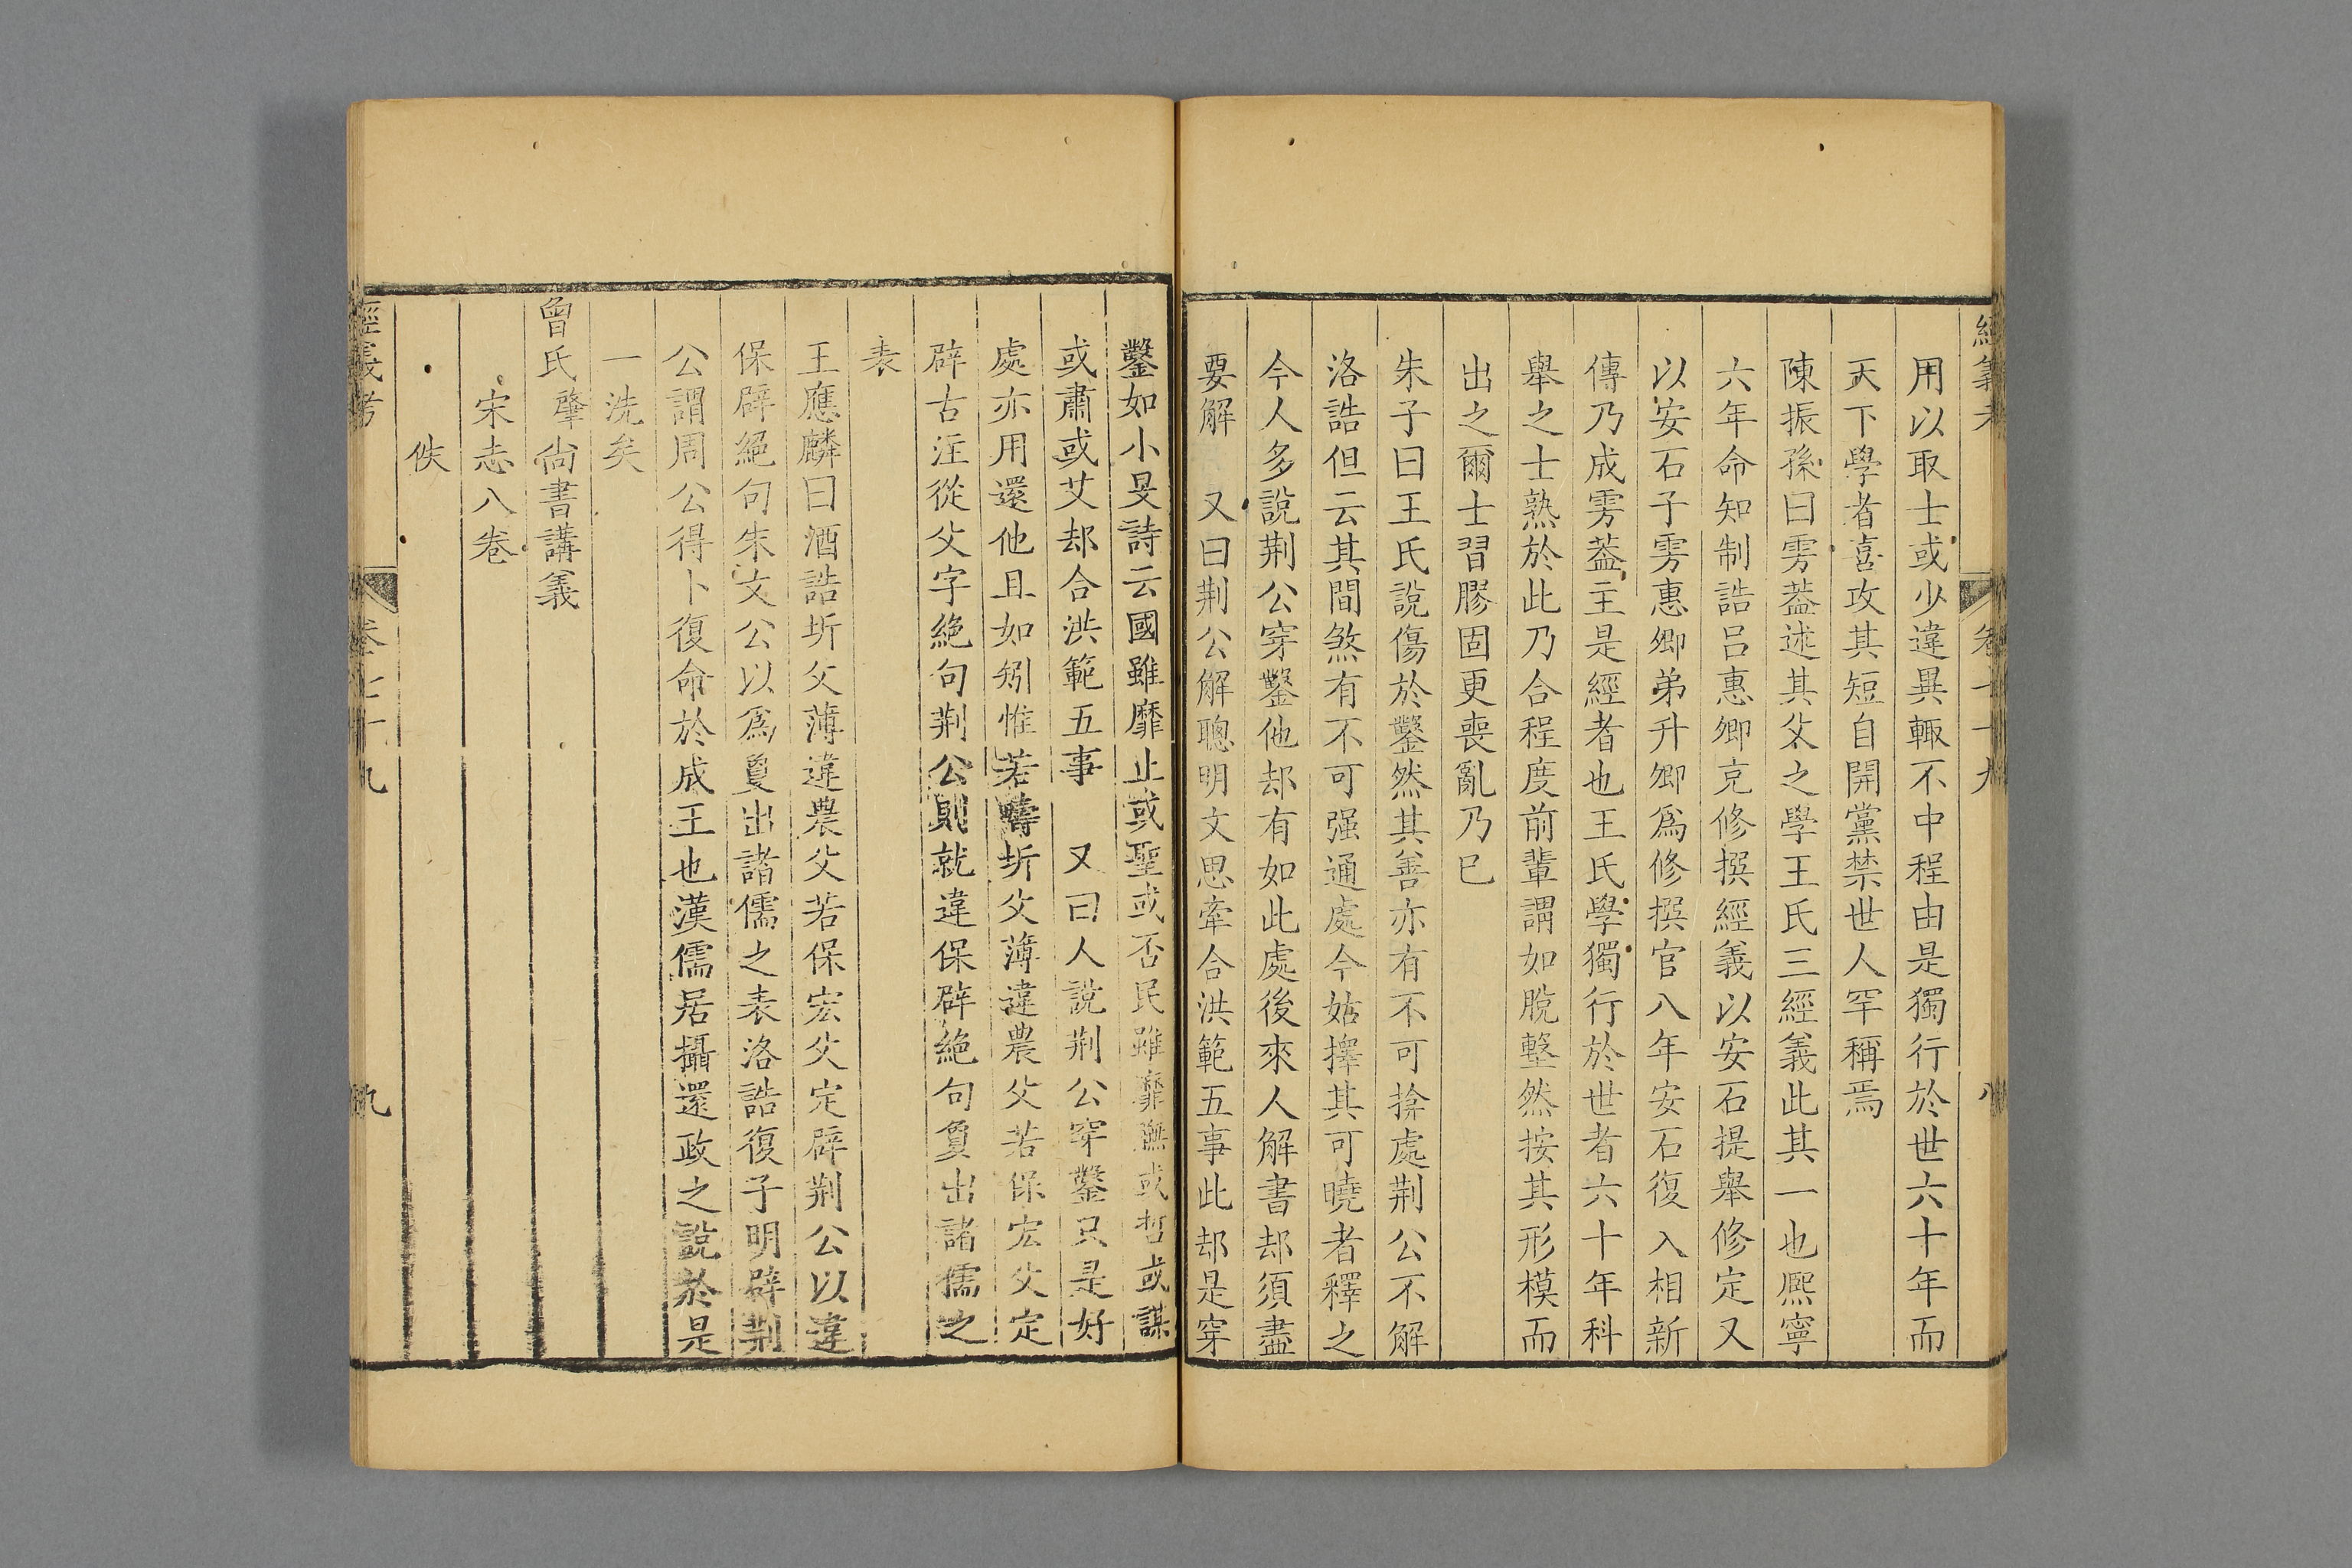 用以取士或少違異輒不中程由是獨行於世六十年而
天下學者喜攻其短自開黨禁世人罕稱焉
陳振孫曰雱葢述其父之學王氏三經義此其一也熈寧
六年命知制誥呂惠卿充修撰經義以安石提舉修定又
以安石子雱惠卿弟升卿爲修撰官八年安石復入相新
傳乃成雱葢主是經者也王氏學獨行於世者六十年科
舉之士熟於此乃合程度前輩謂如脫墼然按其形模而
出之爾士習膠固更喪亂乃已
朱子曰王氏說傷於鑿然其善亦有不可揜處荆公不解
洛誥但云其間煞有不可强通處今姑擇其可曉者釋之
今人多說荆公穿鑿他却有如此處後來人解書却須盡
要解　又曰荆公解聰明文思牽合洪範五事此却是穿
鑿如小旻詩云國雖靡止或聖或否民雖靡膴或哲或謀
或肅或艾却合洪範五事　又曰人說荆公穿鑿只是好
處亦用還他且如矧惟若疇圻父薄違農父若保宏父定
辟古注從父字絕句荆公則就違保辟絕句夐出諸儒之
表
王應麟曰酒誥圻父薄違農父若保宏父定辟荆公以違
保辟絕句朱文公以爲夐出諸儒之表洛誥復子明辟荆
公謂周公得卜復命於成王也漢儒居攝還政之說於是
一洗矣
曾氏肇尙書講義
宋志八卷
佚
經義考　卷七十九　九